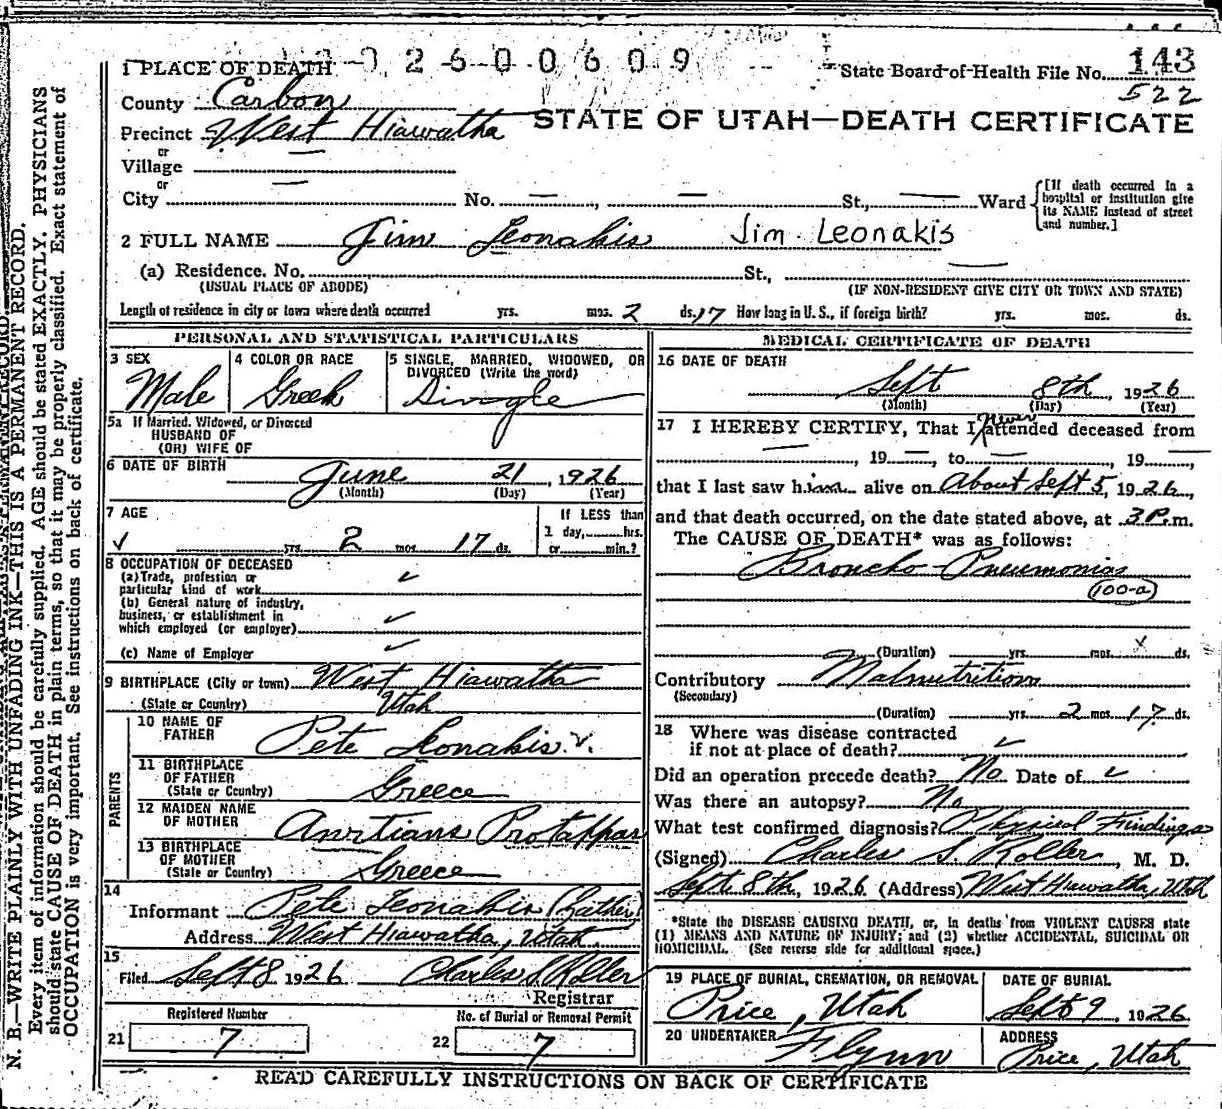 1 PLACE OF DEATH 2 6 0 0 6 0 9
State Board of Health File No. 143
522
County Carbon
Precinct West Hiawatha
STATE OF UTAH—DEATH CERTIFICATE
or
Village —
or
City — No. —, — St., — Ward
[If death occurred in a
hospital or institution give
its NAME instead of street
and number.]
2 FULL NAME Jim Leonakis Jim Leonakis
(a) Residence. No. St., —
(USUAL PLACE OF ABODE) (IF NON-RESIDENT GIVE CITY OR TOWN AND STATE)
Length of residence in city or town where death occurred yrs. mos. 2 ds. 17 How long in U. S., if foreign birth? yrs. mos. ds.
PERSONAL AND STATISTICAL PARTICULARS
3 SEX
Male
4 COLOR OR RACE
Greek
5 SINGLE, MARRIED, WIDOWED, OR
DIVORCED (Write the word)
Single
5a If Married, Widowed, or Divorced
HUSBAND OF
(OR) WIFE OF
6 DATE OF BIRTH
June 21, 1926
(Month) (Day) (Year)
7 AGE
yrs. 2 mos. 17 ds.
If LESS than
1 day, hrs.
or min.?
8 OCCUPATION OF DECEASED
(a) Trade, profession or
particular kind of work ✓
(b) General nature of industry,
business, or establishment in
which employed (or employer) ✓
(c) Name of Employer ✓
9 BIRTHPLACE (City or town) West Hiawatha
(State or Country) Utah
PARENTS
10 NAME OF
FATHER
Pete Leonakis. v.
11 BIRTHPLACE
OF FATHER
(State or Country) Greece
12 MAIDEN NAME
OF MOTHER
13 BIRTHPLACE
OF MOTHER
(State or Country) Greece
14
Informant Pete Leonakis (Father)
Address West Hiawatha, Utah.
15
Filed Sept 8 1926 Charles S. Roller
Registrar
21 Registered Number
7
22 No. of Burial or Removal Permit
7
MEDICAL CERTIFICATE OF DEATH
16 DATE OF DEATH
Sept 8th, 1926
(Month) (Day) (Year)
never
17 I HEREBY CERTIFY, That I attended deceased from
—, 19—, to —, 19—,
that I last saw him alive on About Sept 5, 1926,
and that death occurred, on the date stated above, at 3 P. m.
The CAUSE OF DEATH* was as follows:
Broncho-Pneumonias
(100-a)
(Duration) yrs. mos. x ds.
Contributory Malnutrition
(Secondary)
(Duration) yrs. 2 mos. 17 ds.
18 Where was disease contracted
if not at place of death? ✓
Did an operation precede death? No Date of ✓
Was there an autopsy? No
What test confirmed diagnosis? Physical Findings
(Signed) Charles S. Roller, M. D.
Sept 8th, 1926 (Address) West Hiawatha, Utah
*State the DISEASE CAUSING DEATH, or, in deaths from VIOLENT CAUSES state
(1) MEANS AND NATURE OF INJURY; and (2) whether ACCIDENTAL, SUICIDAL OR
HOMICIDAL. (See reverse side for additional space.)
19 PLACE OF BURIAL, CREMATION, OR REMOVAL
Price, Utah
DATE OF BURIAL
Sept 9, 1926
20 UNDERTAKER
Flynn
ADDRESS
Price, Utah
READ CAREFULLY INSTRUCTIONS ON BACK OF CERTIFICATE
N. B.—WRITE PLAINLY WITH UNFADING INK—THIS IS A PERMANENT RECORD.
Every item of information should be carefully supplied. AGE should be stated EXACTLY. PHYSICIANS
should state CAUSE OF DEATH in plain terms, so that it may be properly classified. Exact statement of
OCCUPATION is very important. See instructions on back of certificate.